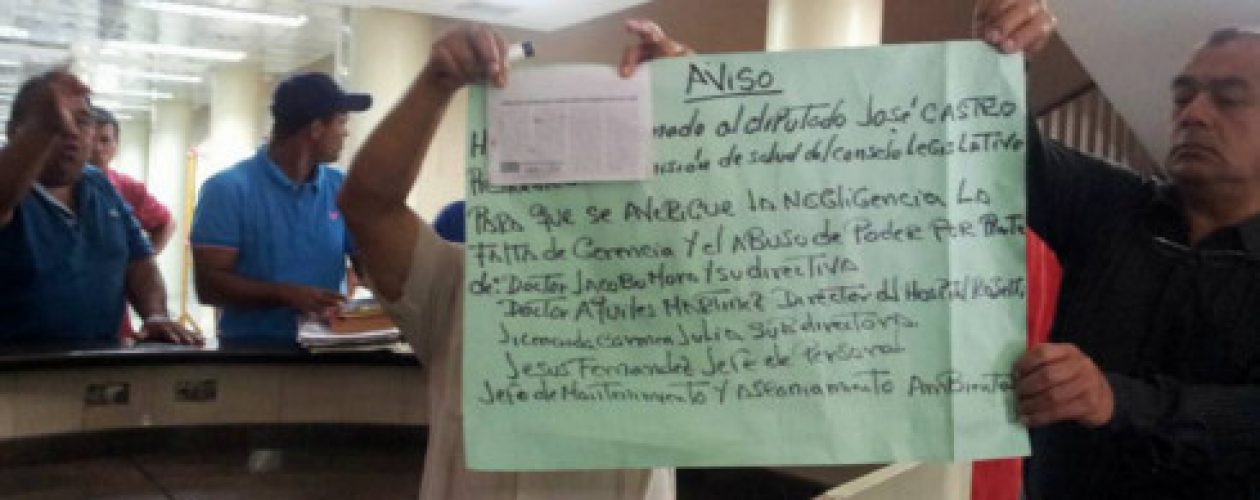 AVISO
al diputado José CASTRO
de salud del consejo LEGISLATIVO
PARA que se AVERIGUE la NEGLIGENCIA LA
FALTA de Gerencia Y el ABUSO de PODER POR
de: Doctor Jacobo Mora Y su directiva
Doctor AQuiles MARTINEZ Director del
Licenciada Carmen Julia Subdirectora.
Jesus Fernandez Jefe de Personal
Jefe de Mantenimiento Y